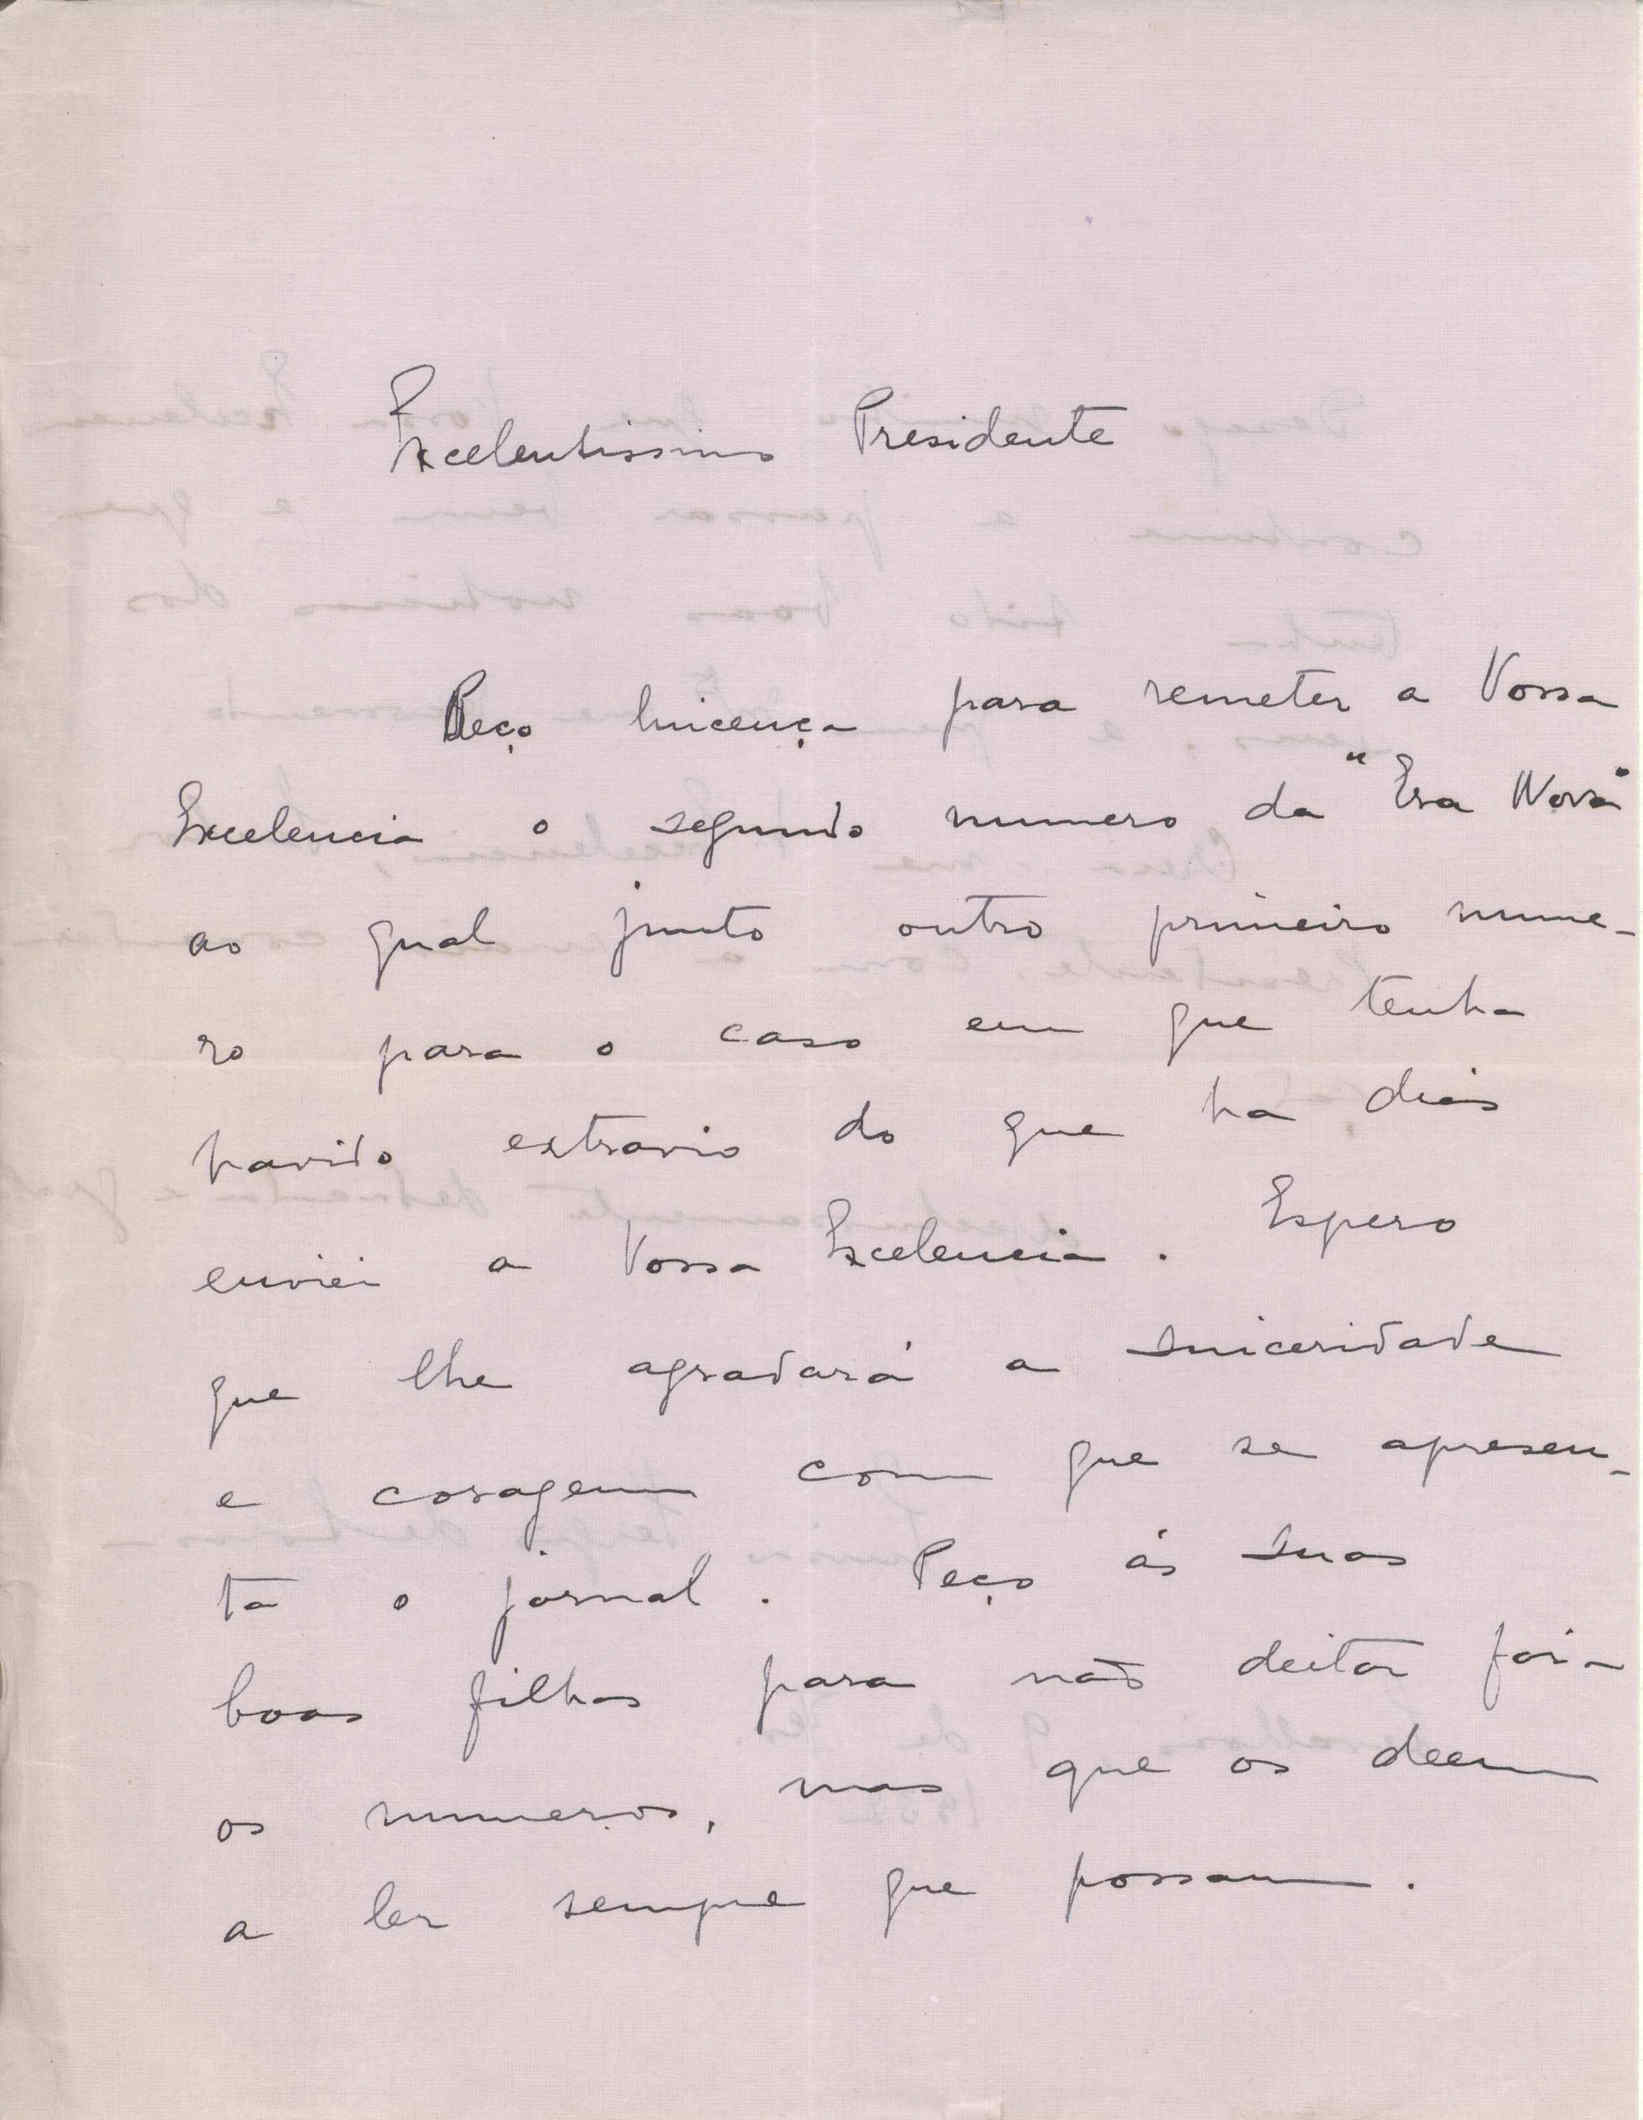 Excelentissimo Presidente
Peço licença para remeter a Vossa
Excelencia o segundo numero da "Era Nova"
ao qual junto outro primeiro nume-
ro para o caso em que tenha
havido extravio do que ha dias
enviei a Vossa Excelencia. Espero
que lhe agradará a sinceridade
e coragem com que se apresen-
ta o jornal. Peço ás suas
boas filhas para não deitar fóra
os numeros, mas que os deem
a ler sempre que possam.